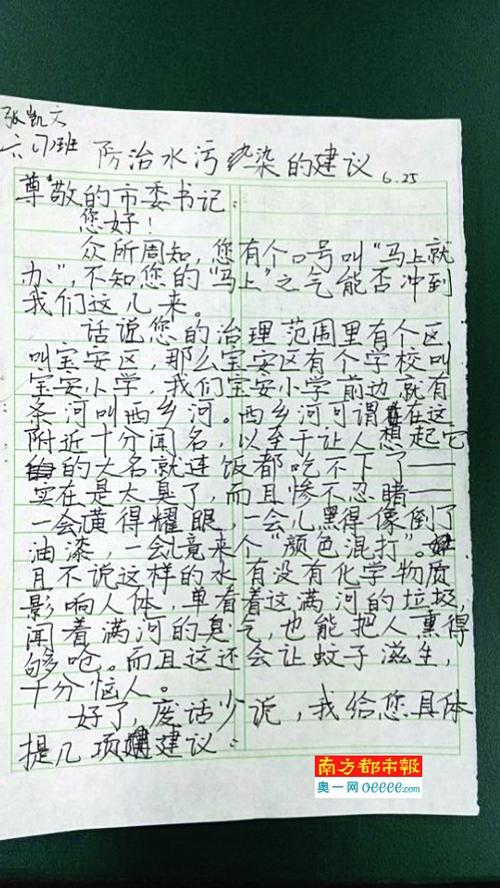 张凯六
六(7)班
防治水污染的建议
6.25
尊敬的市委书记：
您好！
众所周知，您有个口号叫“马上就
办”，不知您的“马上”之气能否冲到
我们这儿来。
话说您的治理范围里有个区
叫宝安区，那么宝安区有个学校叫
宝安小学，我们宝安小学前边就有
条河叫西乡河。西乡河可谓在这
附近十分闻名，以至于让人想起它
的大名就连饭都吃不下了——
实在是太臭了，而且惨不忍睹——
一会黄得耀眼，一会儿黑得像倒了
油漆，一会竟来个“颜色混打”。
且不说这样的水有没有化学物质
影响人体，单看着这满河的垃圾，
闻着满河的臭气，也能把人熏得
够呛。而且这还会让蚊子滋生，
十分恼人。
好了，废话少说，我给您具体
提几项建议：
南方都市報
奥一网oeeee.com